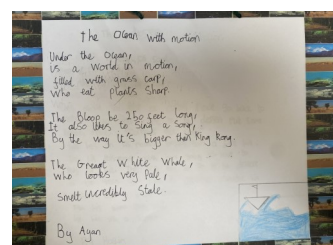 the Ocean with motion
Under the Ocean,
is a world in motion,
filled with grass carp,
who eat plants sharp.
The Bloop be 250 feet long,
It also likes to sing a song,
By the way it's bigger than King Kong.
The Great White Whale,
who looks very Pale,
Smelt incredibly Stale.
By Ayan